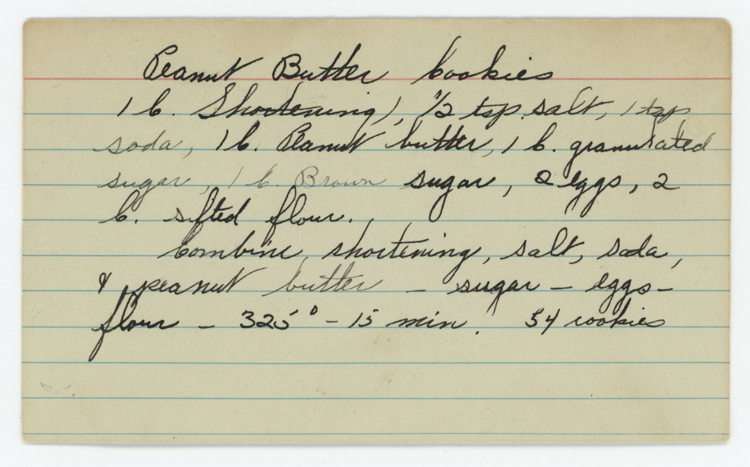 Peanut Butter Cookies
1 C. Shortening), 1/2 tsp. salt, 1 tsp
soda, 1 C. Peanut butter, 1 C. granulated
sugar, 1 C. Brown sugar, 2 eggs, 2
C. sifted flour.
Combine, shortening, salt, soda,
& peanut butter - sugar - eggs -
flour - 325° - 15 min. 54 cookies